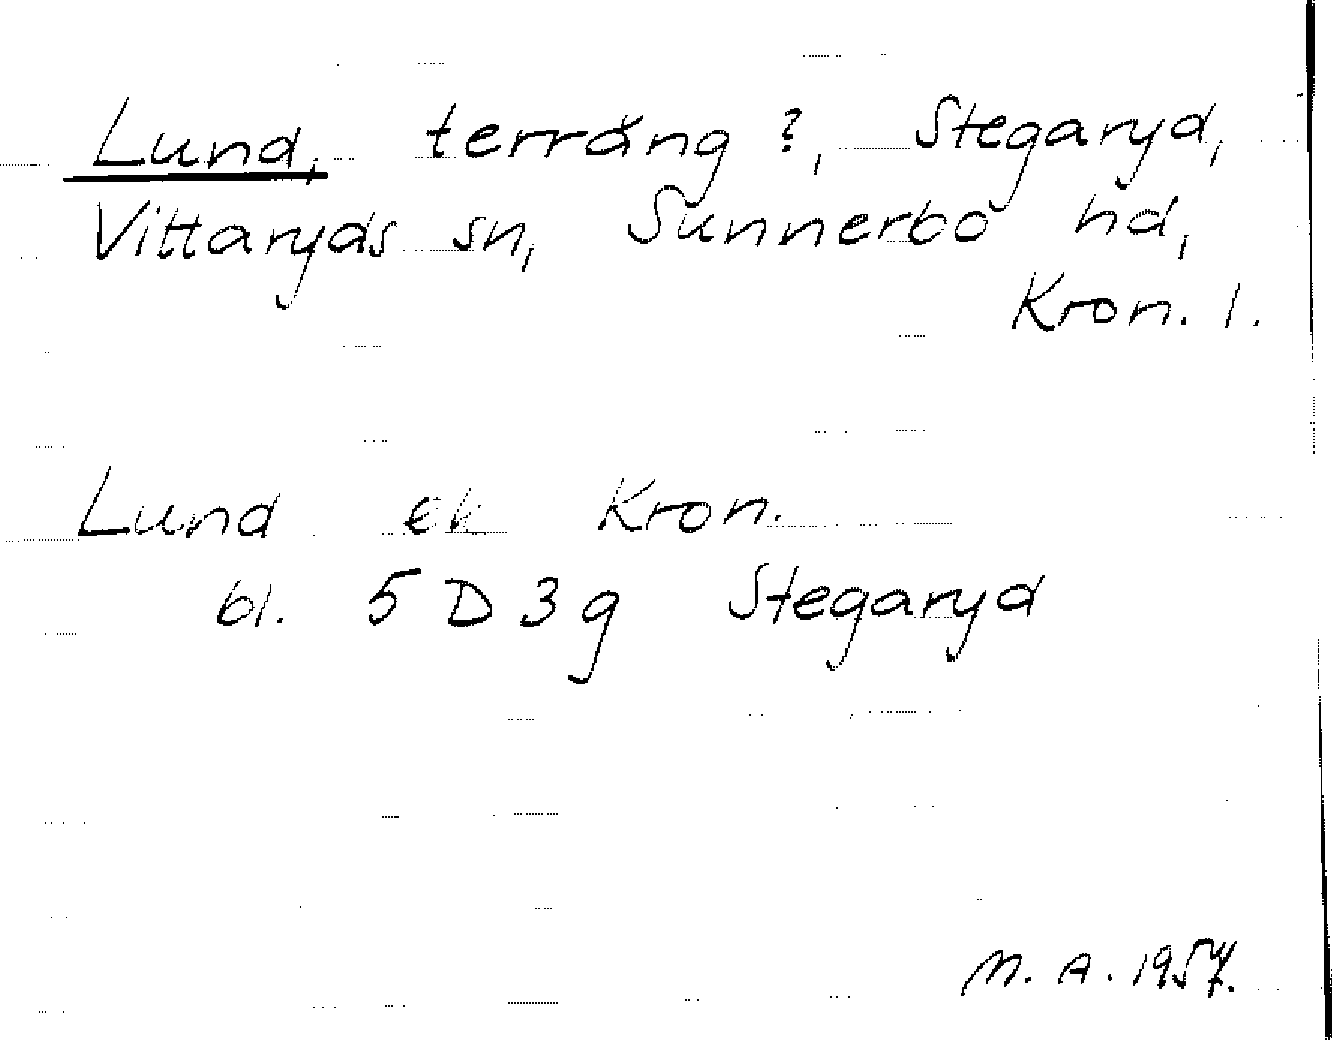 Lund, terräng?, Stegaryd,
Vittaryds sn, Sunnerbo hd,
Kron. l.
Lund ek Kron.
bl. 5 D 3 g Stegaryd
M. A. 1957.